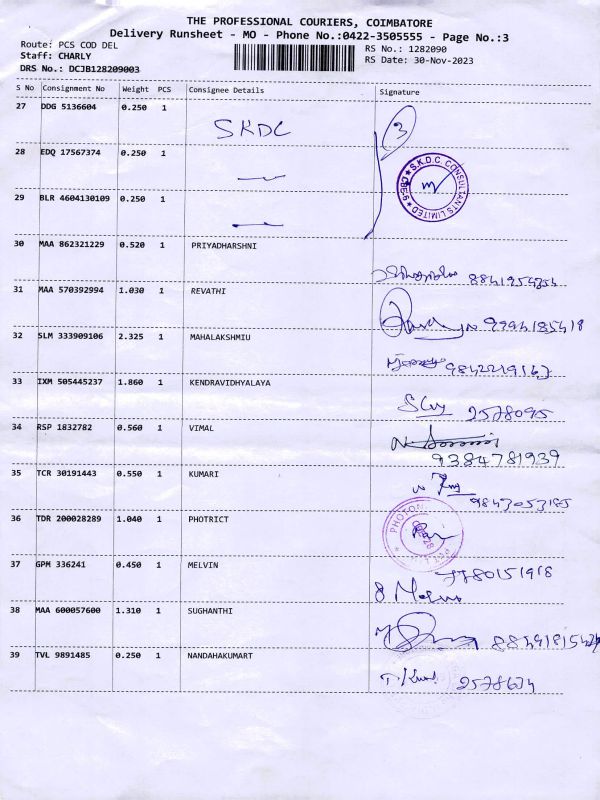 THE PROFESSIONAL COURIERS, COIMBATORE
Delivery Runsheet - MO - Phone No.:0422-3505555 - Page No.:3
Route: PCS COD DEL
RS No.: 1282090
Staff: CHARLY
RS Date: 30-Nov-2023
DRS No.: DCJB128209003
S No Consignment No Weight PCS Consignee Details Signature
27 DDG 5136604 0.250 1 SKDC 3
28 EDQ 17567374 0.250 1
S.K.D.C. CONSULTANTS LIMITED
29 BLR 4604130109 0.250 1
30 MAA 862321229 0.520 1 PRIYADHARSHNI
31 MAA 570392994 1.030 1 REVATHI
9994185418
32 SLM 333909106 2.325 1 MAHALAKSHMIU
9842219167
33 IXM 505445237 1.860 1 KENDRAVIDHYALAYA
2578095
34 RSP 1832782 0.560 1 VIMAL
9384781939
35 TCR 30191443 0.550 1 KUMARI
9843053185
36 TDR 200028289 1.040 1 PHOTRICT
37 GPM 336241 0.450 1 MELVIN
7780151918
38 MAA 600057600 1.310 1 SUGHANTHI
39 TVL 9891485 0.250 1 NANDAHAKUMART